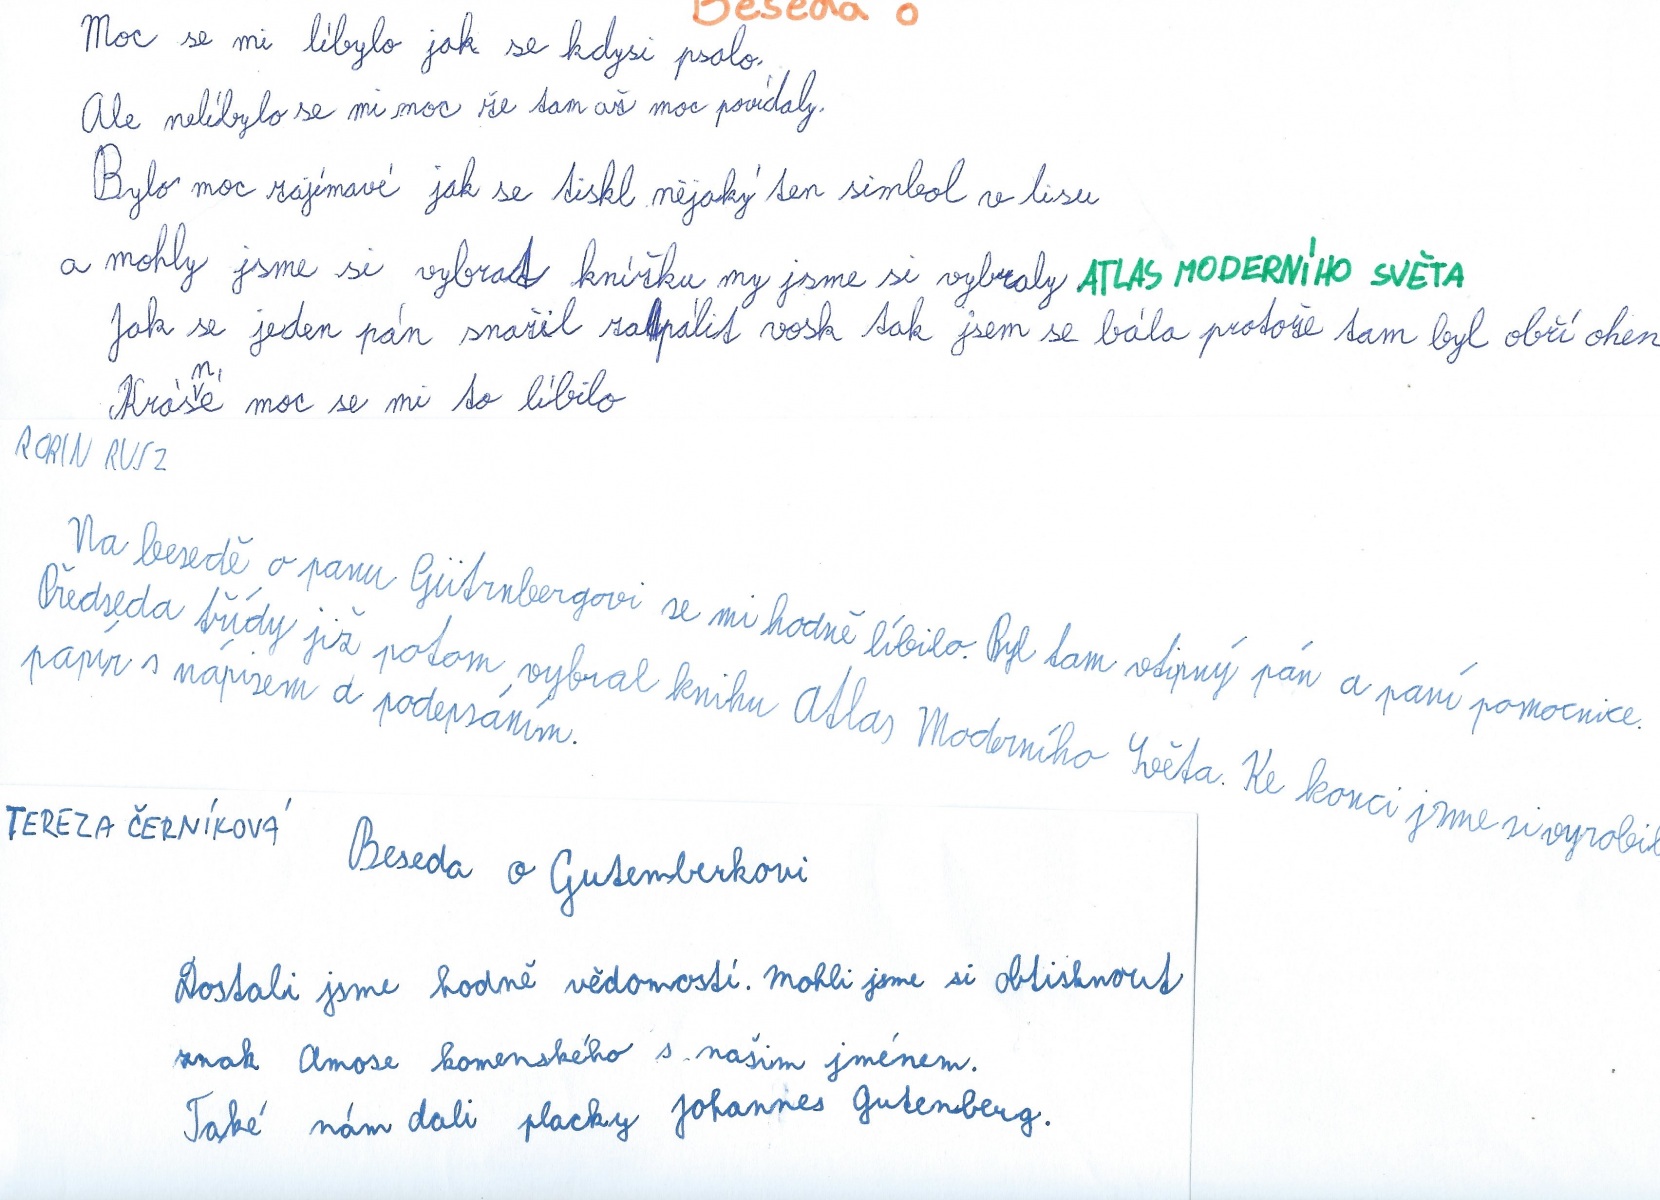 Beseda o
Moc se mi líbylo jak se kdysi psalo.
Ale nelíbylo se mi moc že tam až moc povídaly.
Bylo moc zajímavé jak se tiskl nějaký ten simbol v lisu
a mohly jsme si vybrat knížku my jsme si vybraly ATLAS MODERNÍHO SVĚTA
Jak se jeden pán snažil zapálit vosk tak jsem se bála protože tam byl obří ohen
moc se mi to líbilo
Na besedě o panu Gütrnbergovi se mi hodně líbilo. Byl tam vtipný pán a paní pomocnice.
Předseda třídy již potom vybral knihu Atlas Moderního Světa. Ke konci jsme si vyrobil
papír s nápisem a podepsáním.
TEREZA ČERNÍKOVÁ
Beseda o Gutemberkovi
Dostali jsme hodně vědomostí. Mohli jsme si obtisknout
znak Amose komenského s našim jménem.
Také nám dali placky Johannes Gutenberg.